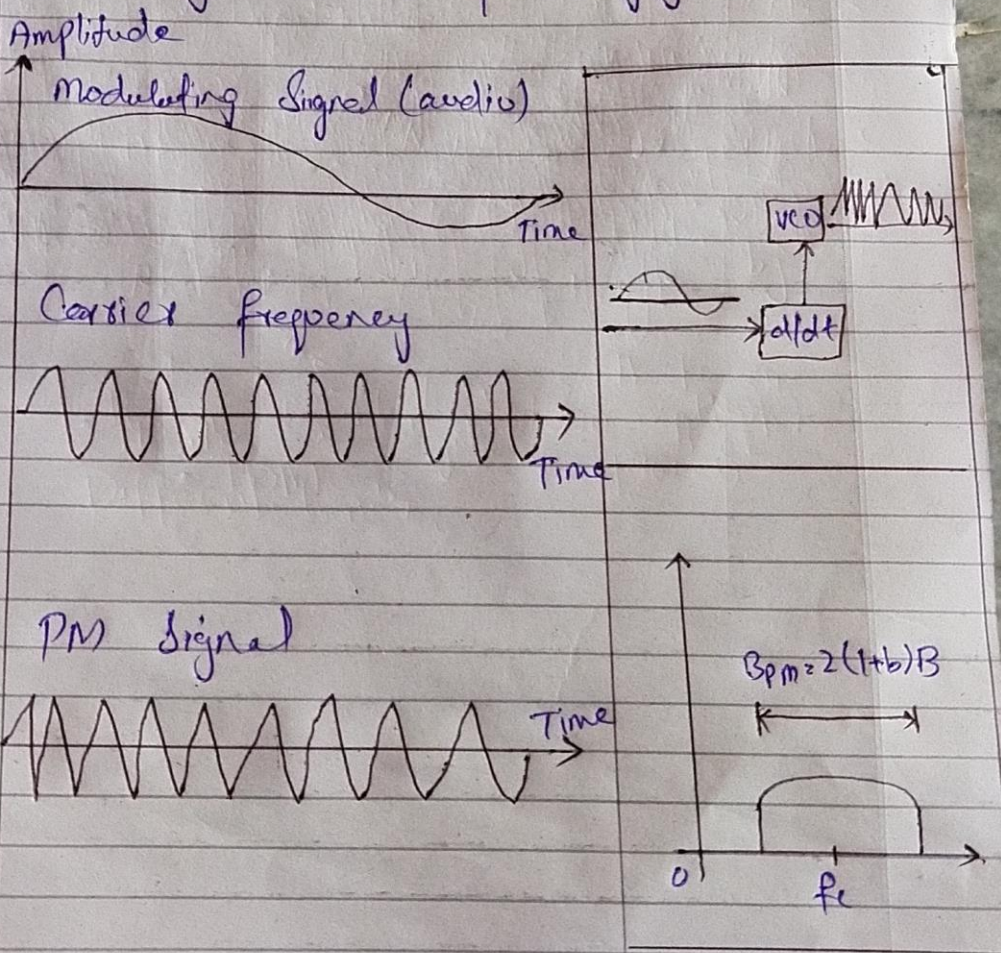 Amplitude
Modulating Signal (audio)
Time
VCO
d/dt
Carrier frequency
Time
PM Signal
Time
Bpm=2(1+b)B
0
fc